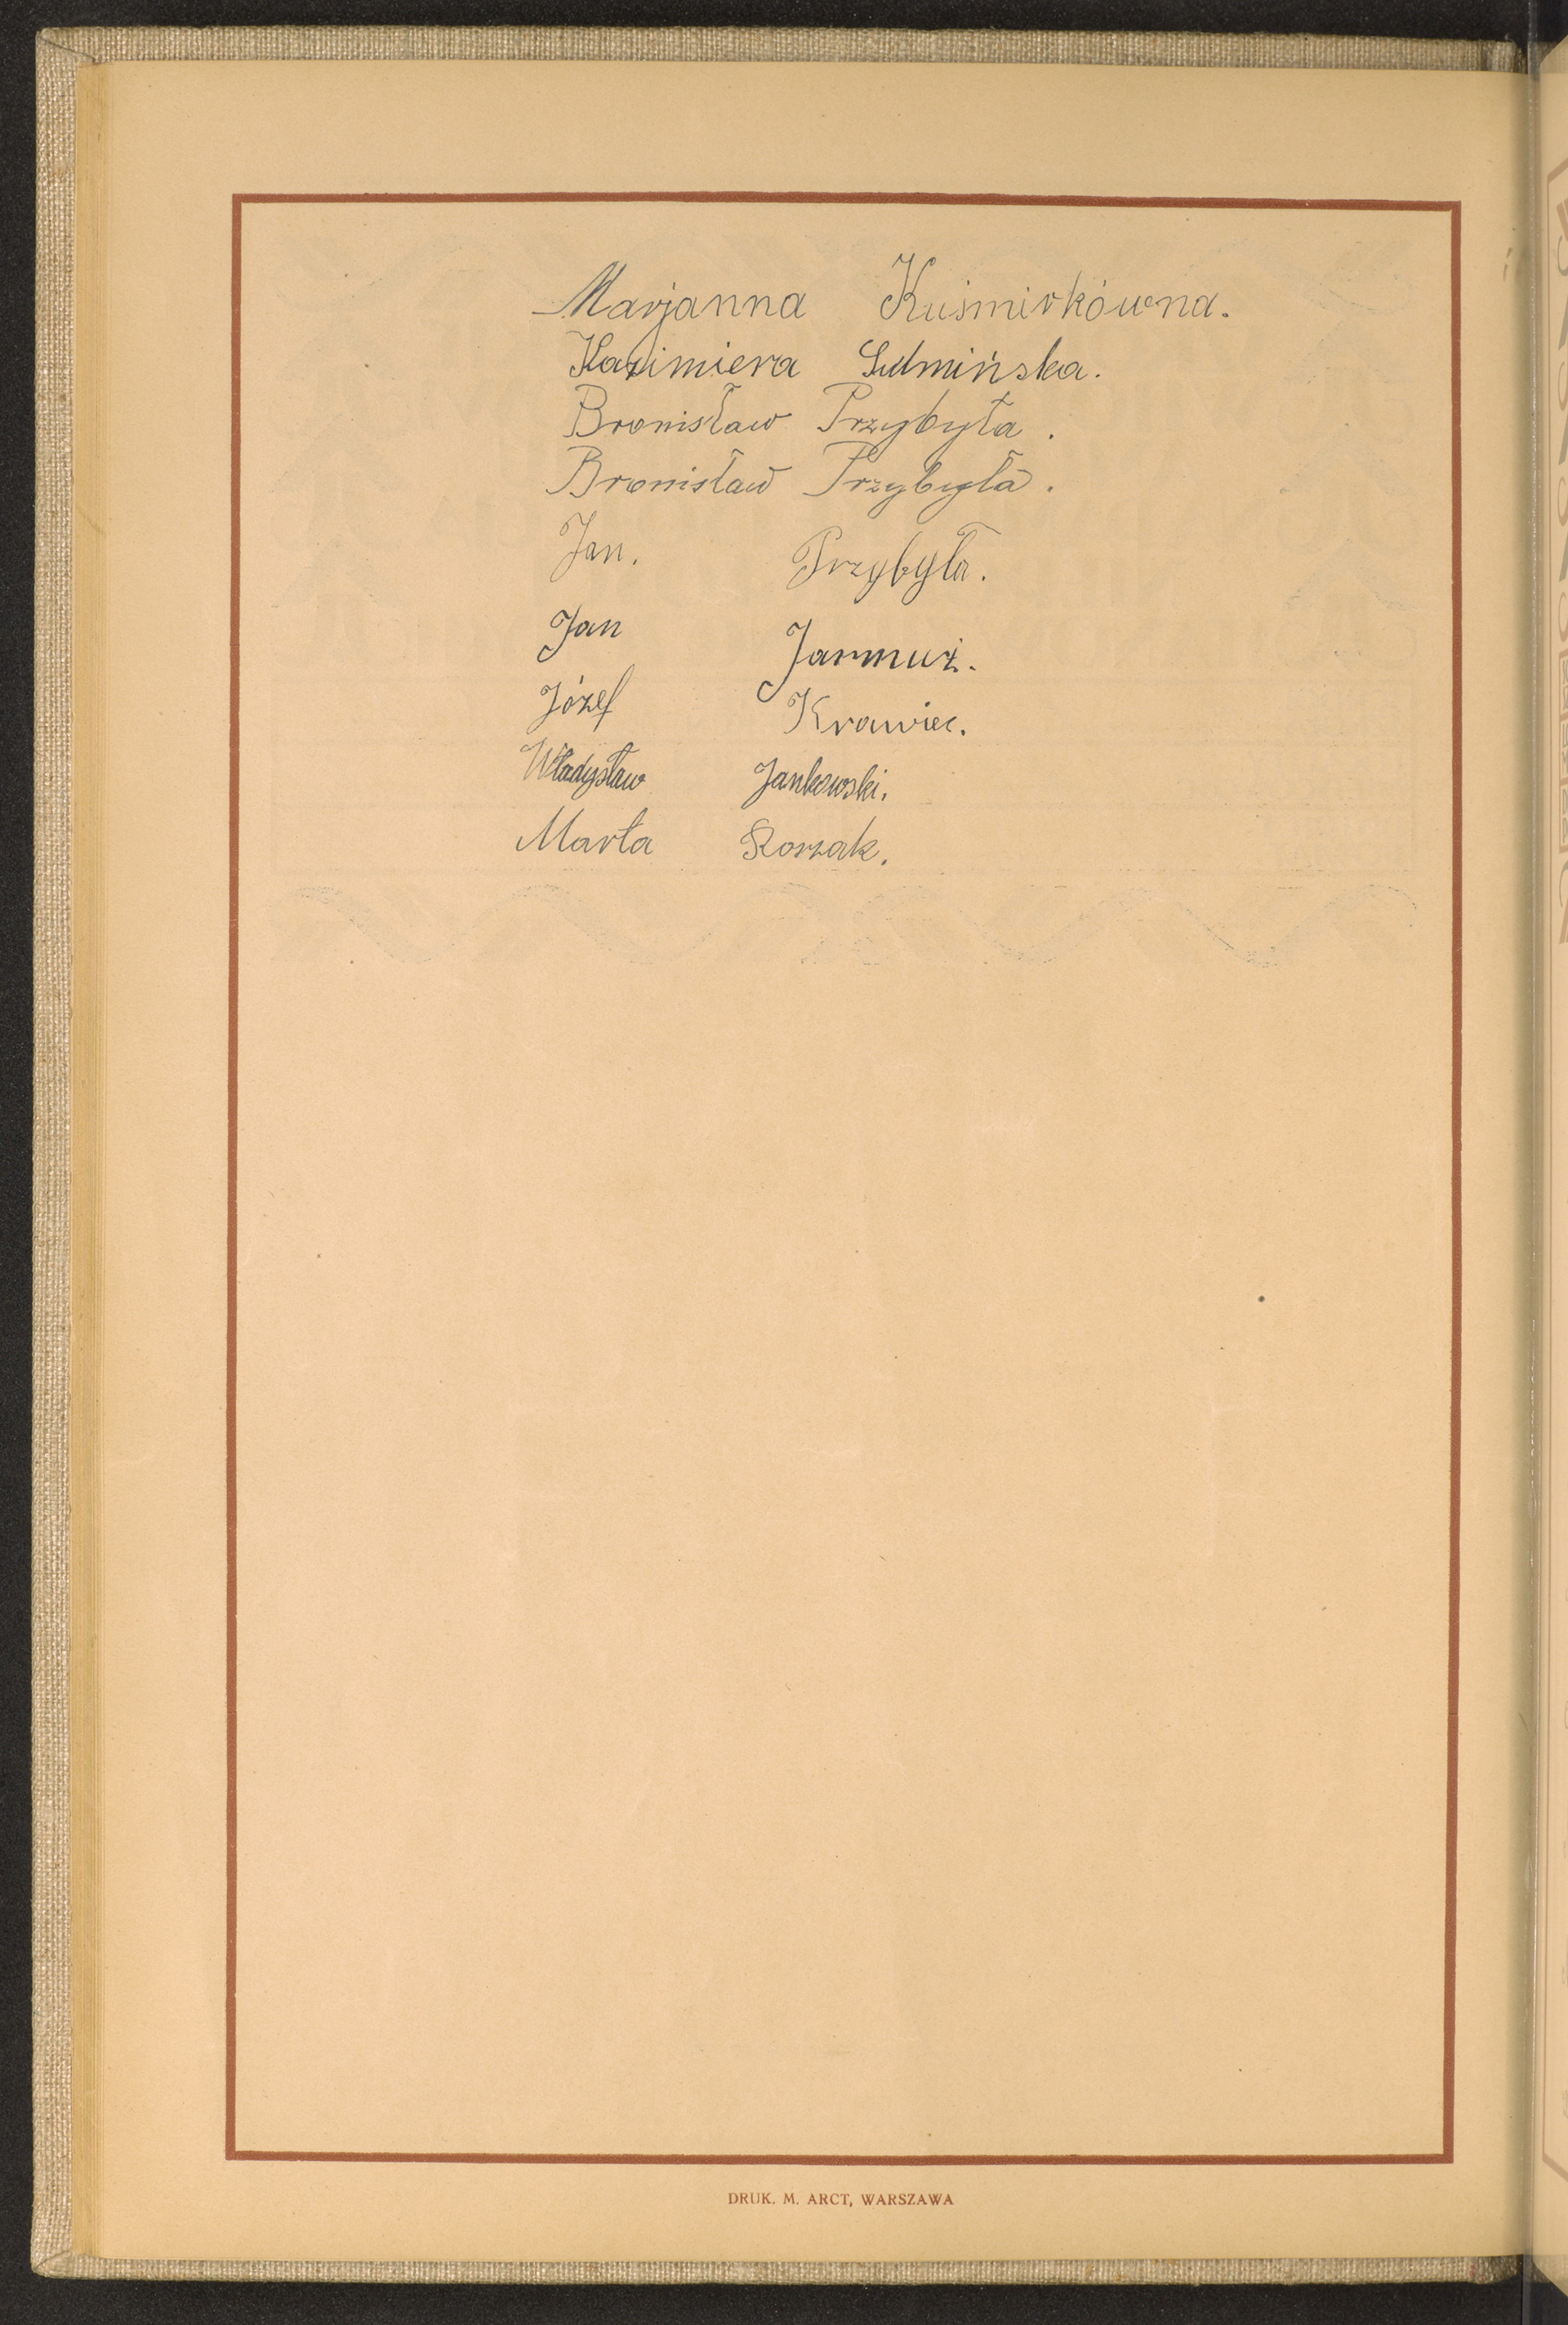 Marjanna Kuśmirkówna.
Kazimiera Sulmińska.
Bronisław Przybyła.
Bronisław Przybyła.
Jan. Przybyła.
Jan Jarmuż.
Józef Krawiec.
Władysław Jankowski.
Marta Korzak.
DRUK. M. ARCT, WARSZAWA